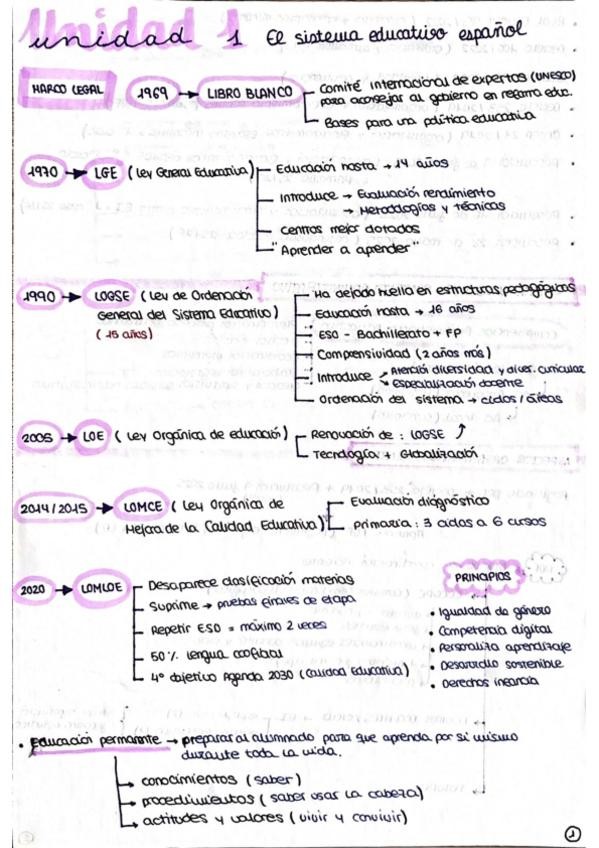 Unidad 1 El sistema educativo español
MARCO LEGAL
1969 → LIBRO BLANCO
Comité internacional de expertos (UNESCO)
para aconsejar al gobierno en reforma edu.
Bases para una política educativa
1970 → LGE (Ley General Educativa)
Educación hasta → 14 años
Introduce → Evaluación rendimiento
→ Metodologías y técnicas
Centros mejor dotados
"Aprender a aprender"
1990 → LOGSE (Ley de Ordenación
General del Sistema Educativo)
(15 años)
Ha dejado huella en estructuras pedagógicas
Educación hasta → 16 años
ESO - Bachillerato + FP
Compensividad (2 años más)
Introduce → Atención diversidad y diver. curricular
→ especialización docente
Ordenación del sistema → ciclos / áreas
2005 → LOE (Ley Orgánica de educación)
Renovación de : LOGSE ↑
Tecnología + Globalización
2014/2015 → LOMCE (Ley Orgánica de
Mejora de la Calidad Educativa)
Evaluación diagnóstico
Primaria : 3 ciclos a 6 cursos
2020 → LOMLOE
Desaparece clasificación materias
Suprime → pruebas finales de etapa
Repetir ESO = máximo 2 veces
50% lengua cooficial
4º objetivo Agenda 2030 (Calidad educativa)
PRINCIPIOS
• Igualdad de género
• Competencia digital
• Personaliza aprendizaje
• Desarrollo sostenible
• Derechos infancia
• Educación permanente → preparar al alumnado para que aprenda por sí mismo
durante toda la vida.
→ conocimientos (saber)
→ procedimientos (saber usar la cabeza)
→ actitudes y valores (vivir y convivir)
1